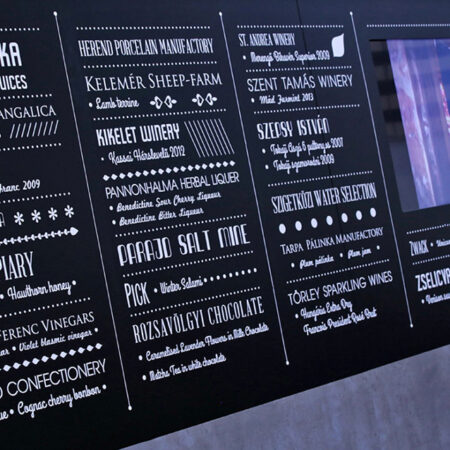 KA
UICES
ANGALICA
Franc 2009
PIARY
• Hawthorn honey •
FERENC VINEGARS
• Violet blasmic vinegar •
CONFECTIONERY
• Cognac cherry bonbon •
HEREND PORCELAIN MANUFACTORY
KELEMÉR SHEEP-FARM
• Lamb terrine
KIKELET WINERY
• Kassai Hárslevelű 2012
PANNONHALMA HERBAL LIQUER
• Benedictine Sour Cherry Liqueur
• Benedictine Bitter Liqueur
PARAJD SALT MINE
PICK • Winter Salami
ROZSAVÖLGYI CHOCOLATE
• Caramelised Lavender Flowers in Milk Chocolate
• Matcha Tea in white chocolate
ST. ANDREA WINERY
• Merengő Bikavér Superior 2009
SZENT TAMÁS WINERY
• Mád Furmint 2013
SZEPSY ISTVÁN
• Tokaji Aszú 6 puttonyos 2007
• Tokaji szamorodni 2009
SZIGETKÖZI WATER SELECTION
TARPA PÁLINKA MANUFACTORY
• Plum pálinka • Plum jam •
TÖRLEY SPARKLING WINES
• Hungária Extra Dry
• Francois President Rosé Brut
ZWACK •
ZSELICV